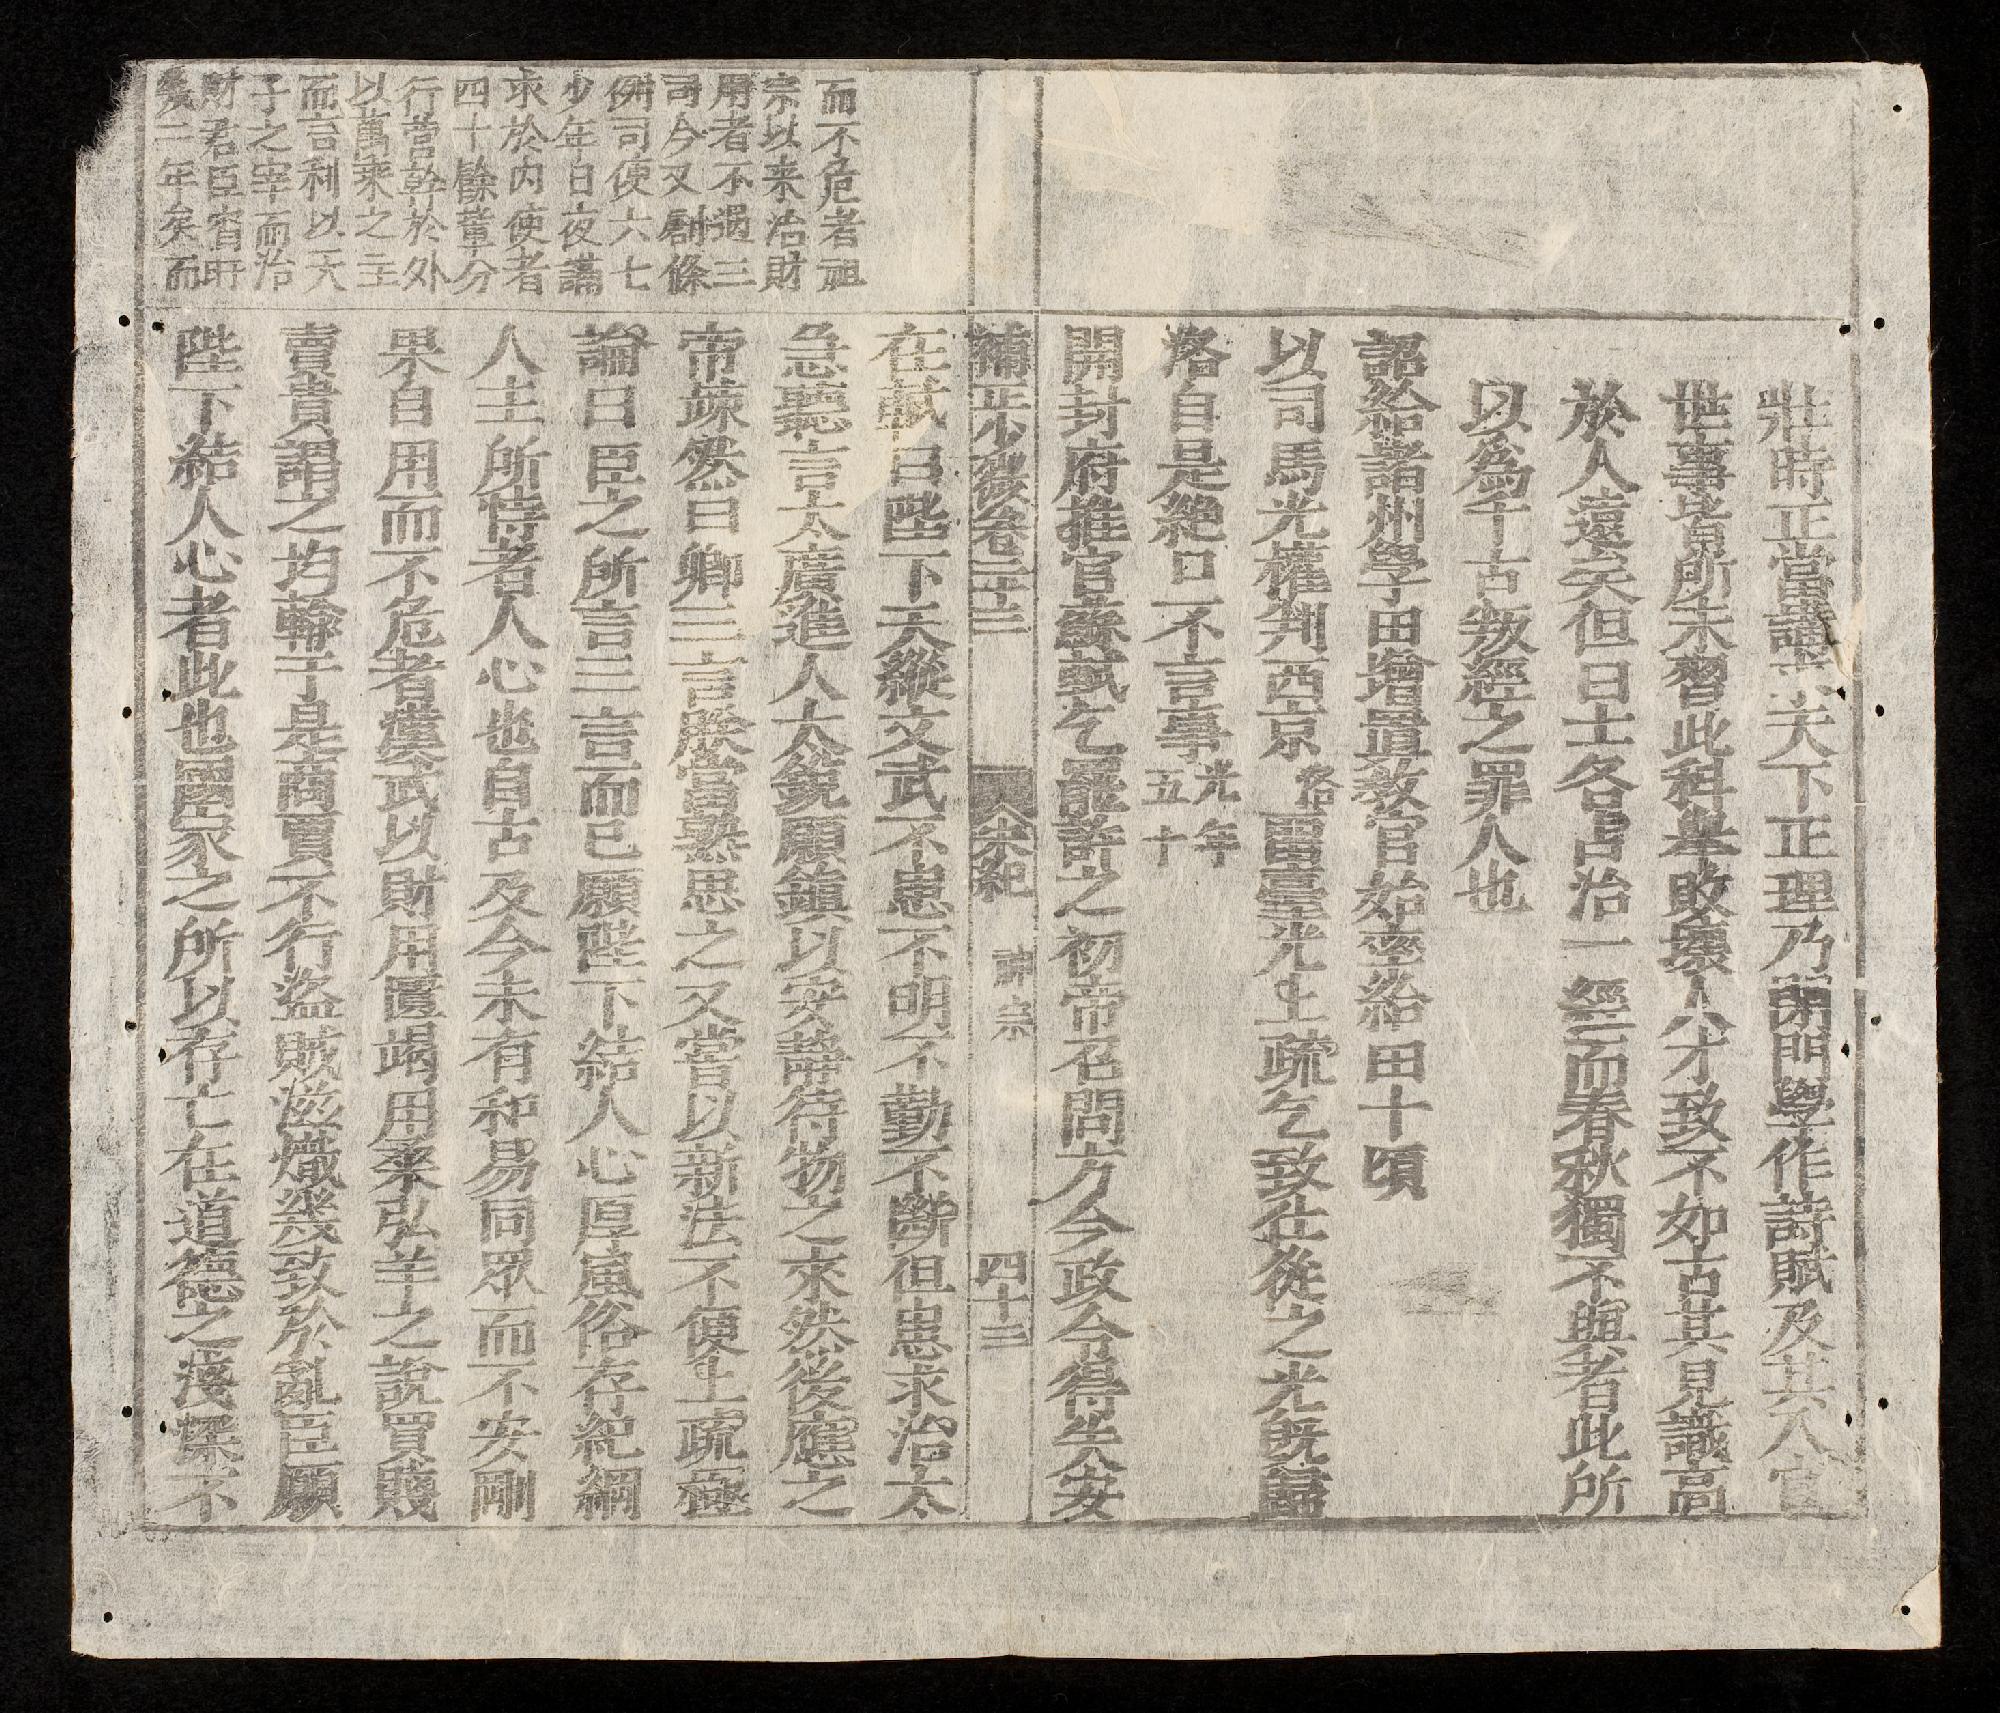 壯時正當講求天下正理乃閉門學作詩賦及其入官
世事皆所未習此科舉敗壞人才致不如古其見識高
於人遠矣但曰士各占治一經而春秋獨不與者此所
以爲千古叛經之罪人也
詔給諸州學田增置教官始率給田十頃
以司馬光權判西京洛留臺光上疏乞致仕從之光旣歸
洛自是絕口不言事光年
五十
開封府推官蘇軾乞罷許之初帝召問方今政令得失安
補正少微卷二十三 宋紀 神宗 四十三
在軾曰陛下天縱文武不患不明不勤不斷但患求治太
急聽言太廣進人太銳願鎮以安靜待物之來然後應之
帝竦然曰卿三言朕當熟思之又嘗以新法不便上疏極
論曰臣之所言三言而已願陛下結人心厚風俗存紀綱
人主所恃者人心也自古及今未有和易同眾而不安剛
果自用而不危者漢武以財用匱竭用桑弘羊之說買賤
賣貴謂之均輸于是商賈不行盜賊滋熾幾致於亂臣願
陛下結人心者此也國家之所以存亡在道德之淺深不
而不危者祖
宗以来治財
用者不過三
司今又創條
例司使六七
少年日夜講
求於內使者
四十餘輩分
行營幹於外
以萬乘之主
而言利以天
子之宰而治
財君臣宵旰
幾二年矣而